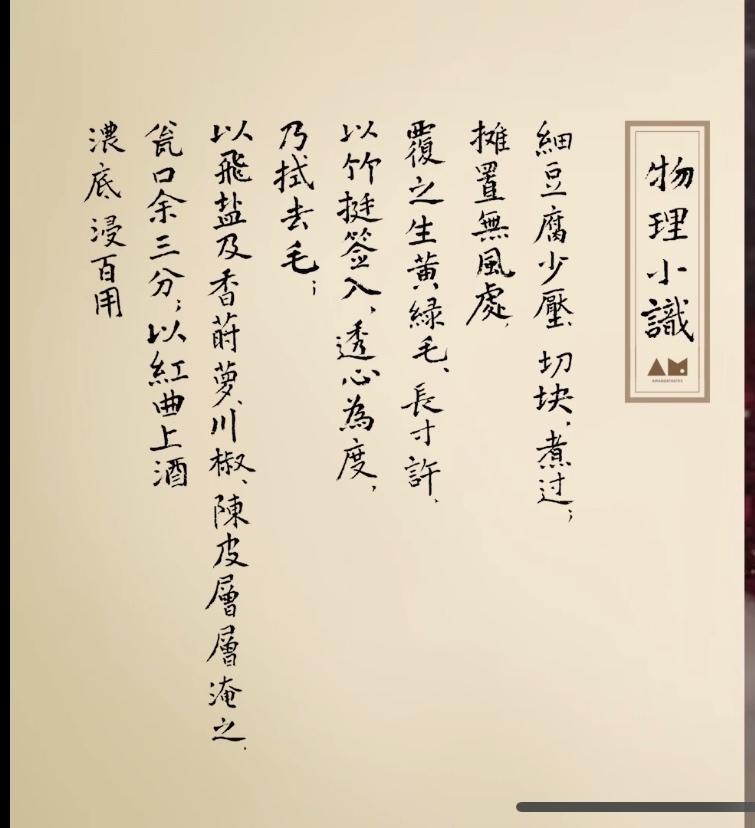 物理小識
細豆腐少壓、切块，煮过；
攤置無風處，
覆之生黄緑毛、長寸許，
以竹挺签入，透心為度，
乃拭去毛；
以飛盐及香蒔萝、川椒、陳皮層層淹之，
瓮口余三分；以紅曲上酒
濃底浸百用